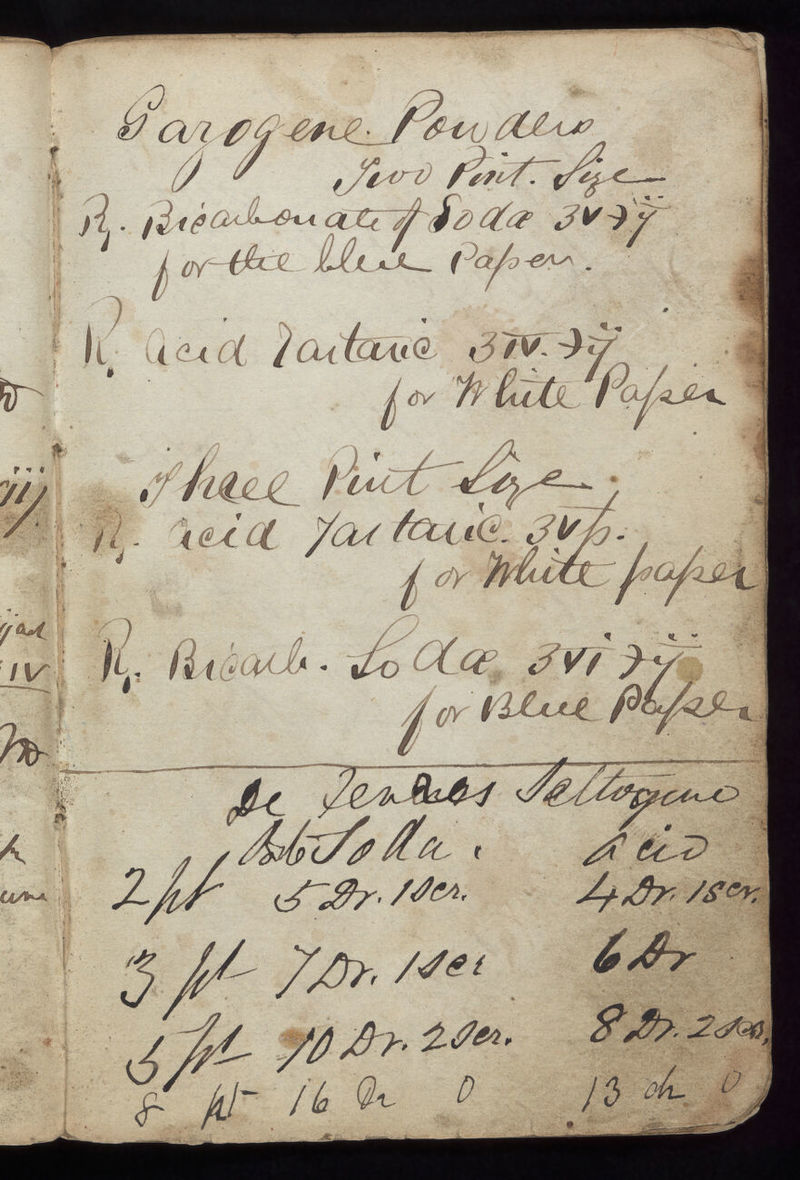 Gazogene Powders
Two Pint. Size
℞. Bicarbonate of Sodæ ʒv ℈ij
for the blue Paper.
℞. Acid Tartaric ʒiv. ℈ij
for White Paper
Three Pint Size.
℞. Acid Tartaric. ʒvſs.
for White paper
℞. Bicarb. Sodæ ʒvi ℈ij
for Blue Paper
De Seltogene
Soda. acid
2 pt 5 Dr. 1 scr. 4 Dr. 1 scr.
3 pt 7 Dr. 1 scr 6 Dr
5 pt 10 Dr. 2 scr. 8 Dr. 2 scr.
8 pt 16 Dr 0 13 dr 0
iij
iv